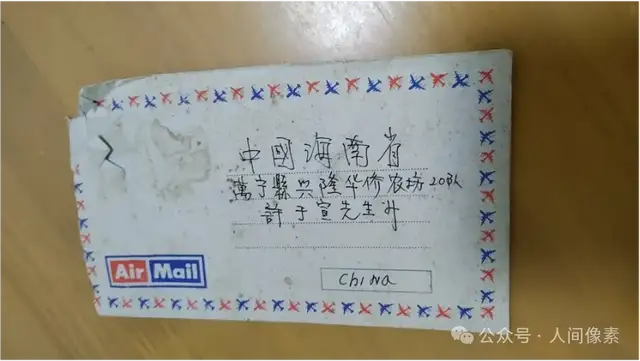 中國海南省
萬宁縣兴隆华侨农坊20队
許于宣先生升
Air Mail
China
公众号·人间像素